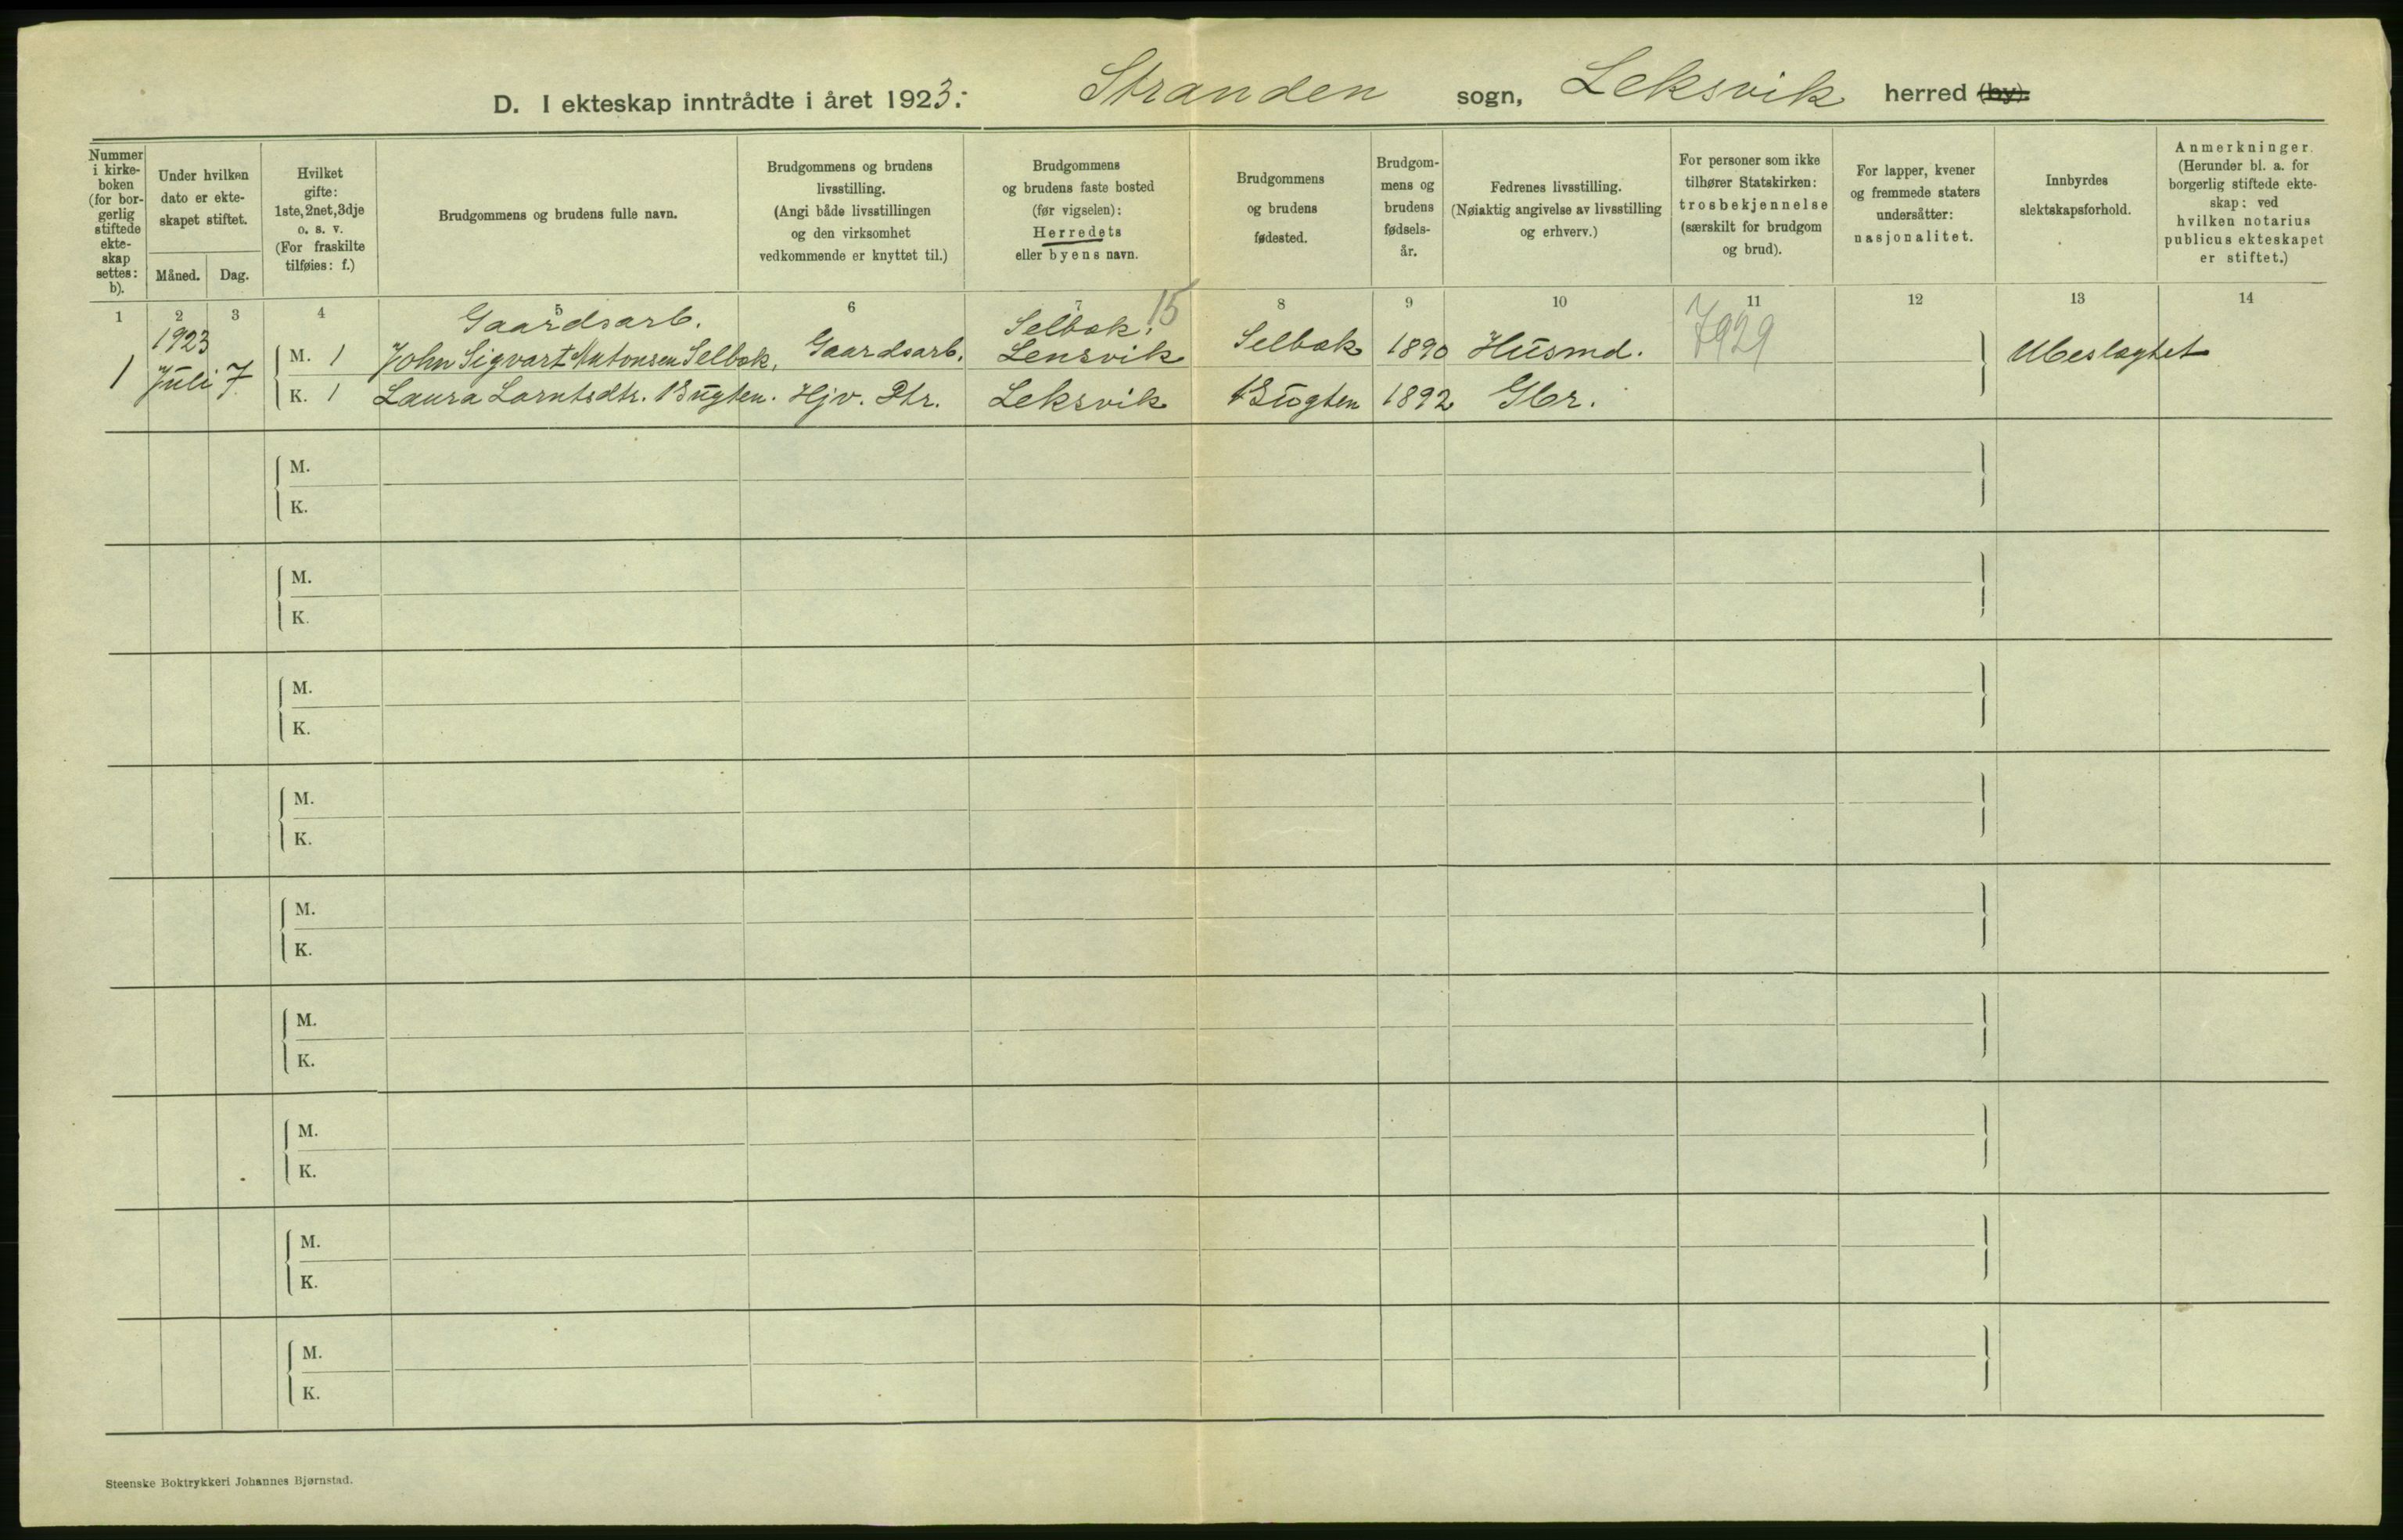 D. I ekteskap inntrådte i året 1923: Stranden sogn, Leksvik herred (by).
Nummer i kirkeboken (for borgerlig stiftede ekteskap settes: b).
Under hvilken dato er ekteskapet stiftet.
Måned. Dag.
Hvilket gifte: 1ste, 2net, 3dje o. s. v. (For fraskilte tilføies: f.)
Brudgommens og brudens fulle navn.
Brudgommens og brudens livsstilling. (Angi både livsstillingen og den virksomhet vedkommende er knyttet til.)
Brudgommens og brudens faste bosted (før vigselen): Herredets eller byens navn.
Brudgommens og brudens fødested.
Brudgommens og brudens fødselsår.
Fedrenes livsstilling. (Nøiaktig angivelse av livsstilling og erhverv.)
For personer som ikke tilhører Statskirken: trosbekjennelse (særskilt for brudgom og brud).
For lapper, kvener og fremmede staters undersåtter: nasjonalitet.
Innbyrdes slektskapsforhold.
Anmerkninger. (Herunder bl. a. for borgerlig stiftede ekteskap: ved hvilken notarius publicus ekteskapet er stiftet.)
1 2 3 4 5 6 7 8 9 10 11 12 13 14
1923 Gaardsarb. Selbak, 15
1 Juli 7 M. 1 John Sigvart Antonsen Selbak, Gaardsarb. Lensvik Selbak 1890 Husmd. 7929 Ubeslagtet
K. 1 Laura Larntsdtr. Bugten. Hjv. Dtr. Leksvik Bugten 1892 Gbr.
M.
K.
M.
K.
M.
K.
M.
K.
M.
K.
M.
K.
M.
K.
M.
K.
M.
K.
Steenske Boktrykkeri Johannes Bjørnstad.